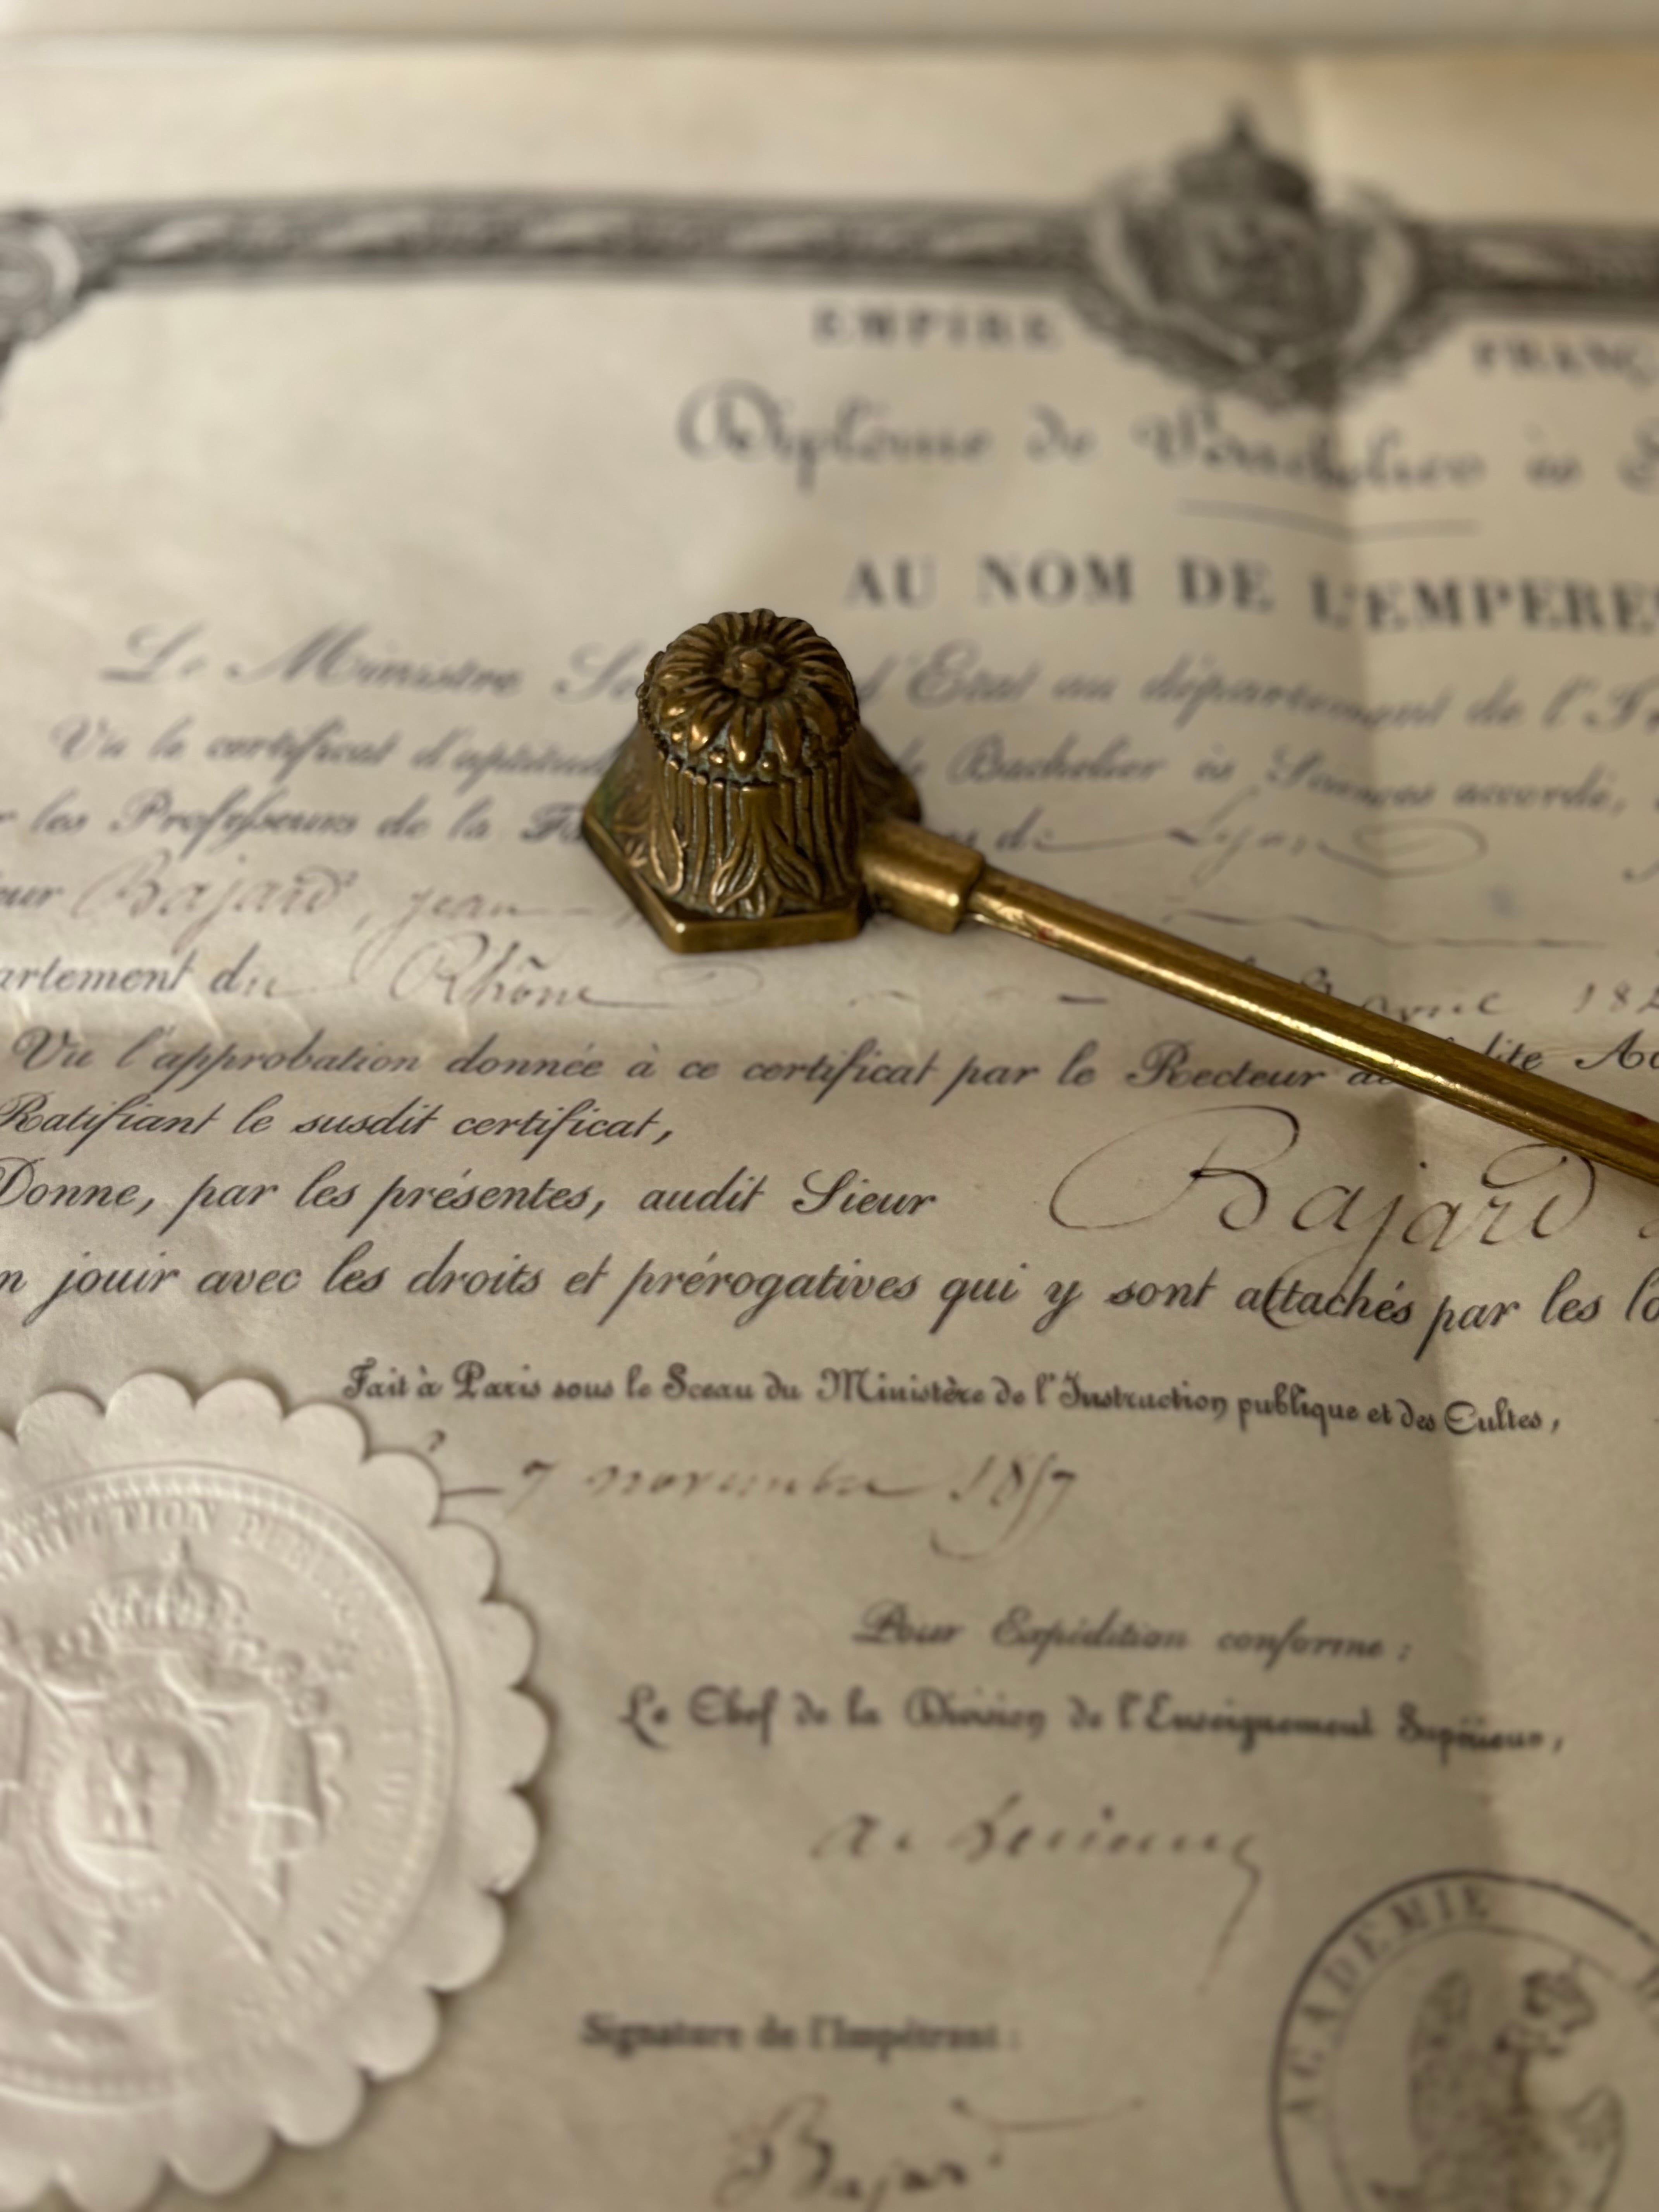 EMPIRE FRANÇ
Diplôme de Bachelier ès S
AU NOM DE L'EMPEREU
Le Ministre Se d'Etat au département de l'In
Vu le certificat d'aptitude de Bachelier ès Sciences accordé,
r les Professeurs de la Fa es de Lyon
eur Bajard, jean
artement du Rhône avril 18
Vu l'approbation donnée à ce certificat par le Recteur de dite Ac
Ratifiant le susdit certificat,
Donne, par les présentes, audit Sieur Bajard
n jouir avec les droits et prérogatives qui y sont attachés par les lo
Fait à Paris sous le Sceau du Ministère de l'Instruction publique et des Cultes,
7 novembre 1857
TRUCTION PUBLIQUE
Pour Expédition conforme :
Le Chef de la Division de l'Enseignement Supérieur,
Signature de l'Impétrant :
ACADEMIE D
Bajard